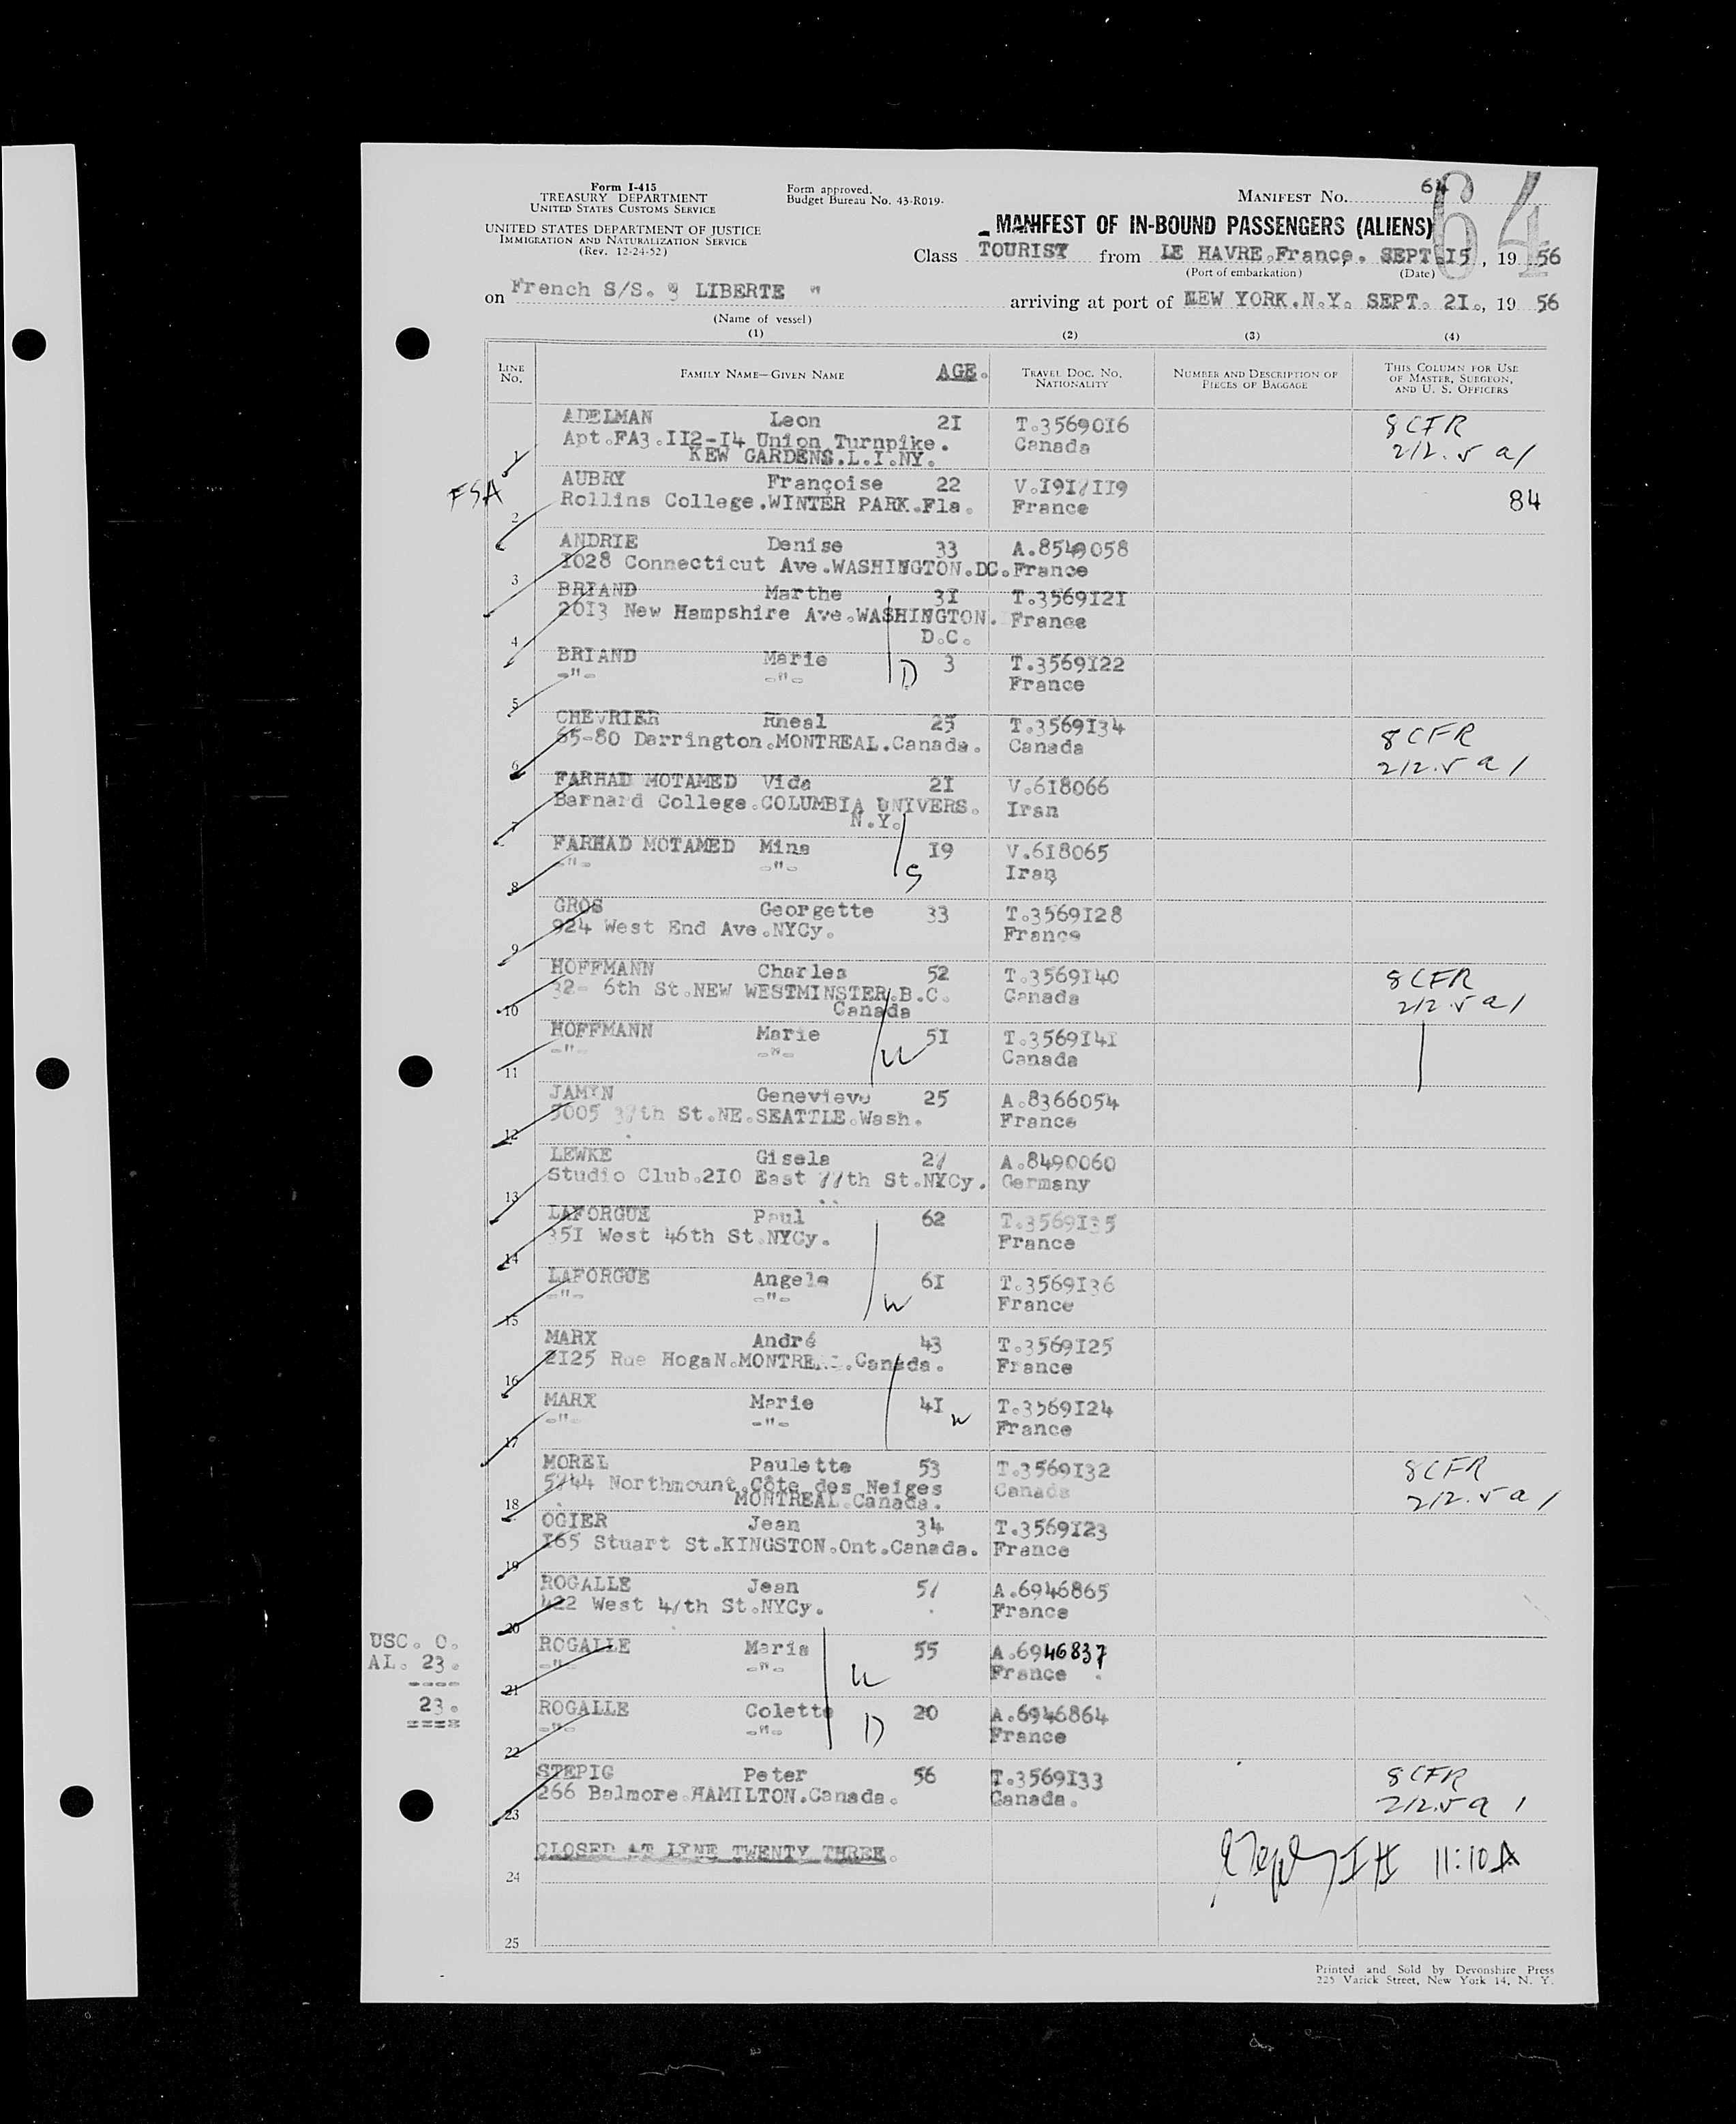 Form I-415
TREASURY DEPARTMENT
UNITED STATES CUSTOMS SERVICE
UNITED STATES DEPARTMENT OF JUSTICE
IMMIGRATION AND NATURALIZATION SERVICE
(Rev. 12-24-52)
Form approved.
Budget Bureau No. 43-R019-
MANIFEST No. 64
64
MANIFEST OF IN-BOUND PASSENGERS (ALIENS)
Class TOURIST from LE HAVRE.France. SEPT.15, 19 56
(Port of embarkation) (Date)
on French S/S. " LIBERTE " arriving at port of NEW YORK.N.Y. SEPT. 2I., 19 56
(Name of vessel)
(1) (2) (3) (4)
LINE No. FAMILY NAME—GIVEN NAME AGE. TRAVEL DOC. NO. NATIONALITY NUMBER AND DESCRIPTION OF PIECES OF BAGGAGE THIS COLUMN FOR USE OF MASTER, SURGEON, AND U. S. OFFICERS
1 ADELMAN Leon 2I T.35690I6 8 CFR
Apt.FA3.II2-I4 Union Turnpike. Canada 212.5 a 1
KEW GARDENS.L.I.NY.
FSA
2 AUBRY Françoise 22 V.I9I7II9 84
Rollins College.WINTER PARK.Fla. France
3 ANDRIE Denise 33 A.8549058
I028 Connecticut Ave.WASHINGTON.DC. France
4 BRIAND Marthe 3I T.3569I2I
20I3 New Hampshire Ave.WASHINGTON. France
D.C.
5 BRIAND Marie D 3 T.3569I22
-"- -"- France
6 CHEVRIER Rneal 25 T.3569I34 8 CFR
65-80 Darrington.MONTREAL.Canada. Canada 212.5 a 1
7 FARHAD MOTAMED Vida 2I V.6I8066
Barnard College.COLUMBIA UNIVERS. Iran
N.Y.
8 FARHAD MOTAMED Mina S I9 V.6I8065
-"- -"- Iran
9 GROS Georgette 33 T.3569I28
924 West End Ave.NYCy. France
10 HOFFMANN Charles 52 T.3569I40 8 CFR
32- 6th St.NEW WESTMINSTER.B.C. Canada 212.5 a 1
Canada
11 HOFFMANN Marie W 5I T.3569I4I
-"- -"- Canada
12 JAMIN Genevieve 25 A.8366054
5005 37th St.NE.SEATTLE.Wash. France
13 LEWKE Gisela 27 A.8490060
Studio Club.2I0 East 77th St.NYCy. Germany
14 LAFORGUE Paul 62 T.3569I35
35I West 46th St.NYCy. France
15 LAFORGUE Angele W 6I T.3569I36
-"- -"- France
16 MARX André 43 T.3569I25
2I25 Rue HogaN.MONTREAL.Canada. France
17 MARX Marie 4I W T.3569I24
-"- -"- France
18 MOREL Paulette 53 T.3569I32 8 CFR
5744 Northmount.Côte des Neiges Canada 212.5 a 1
MONTREAL.Canada.
19 OGIER Jean 34 T.3569I23
I65 Stuart St.KINGSTON.Ont.Canada. France
20 ROGALLE Jean 57 A.6946865
422 West 47th St.NYCy. France
USC. 0.
AL. 23.
----
23.
====
21 ROGALLE Maria W 55 A.6946837
-"- -"- France
22 ROGALLE Colette D 20 A.6946864
-"- -"- France
23 STEPIG Peter 56 T.3569I33 8 CFR
266 Balmore.HAMILTON.Canada. Canada. 212.5 a 1
24 CLOSED AT LINE TWENTY THREE. 11:10A
25
Printed and Sold by Devonshire Press
225 Varick Street, New York 14, N. Y.